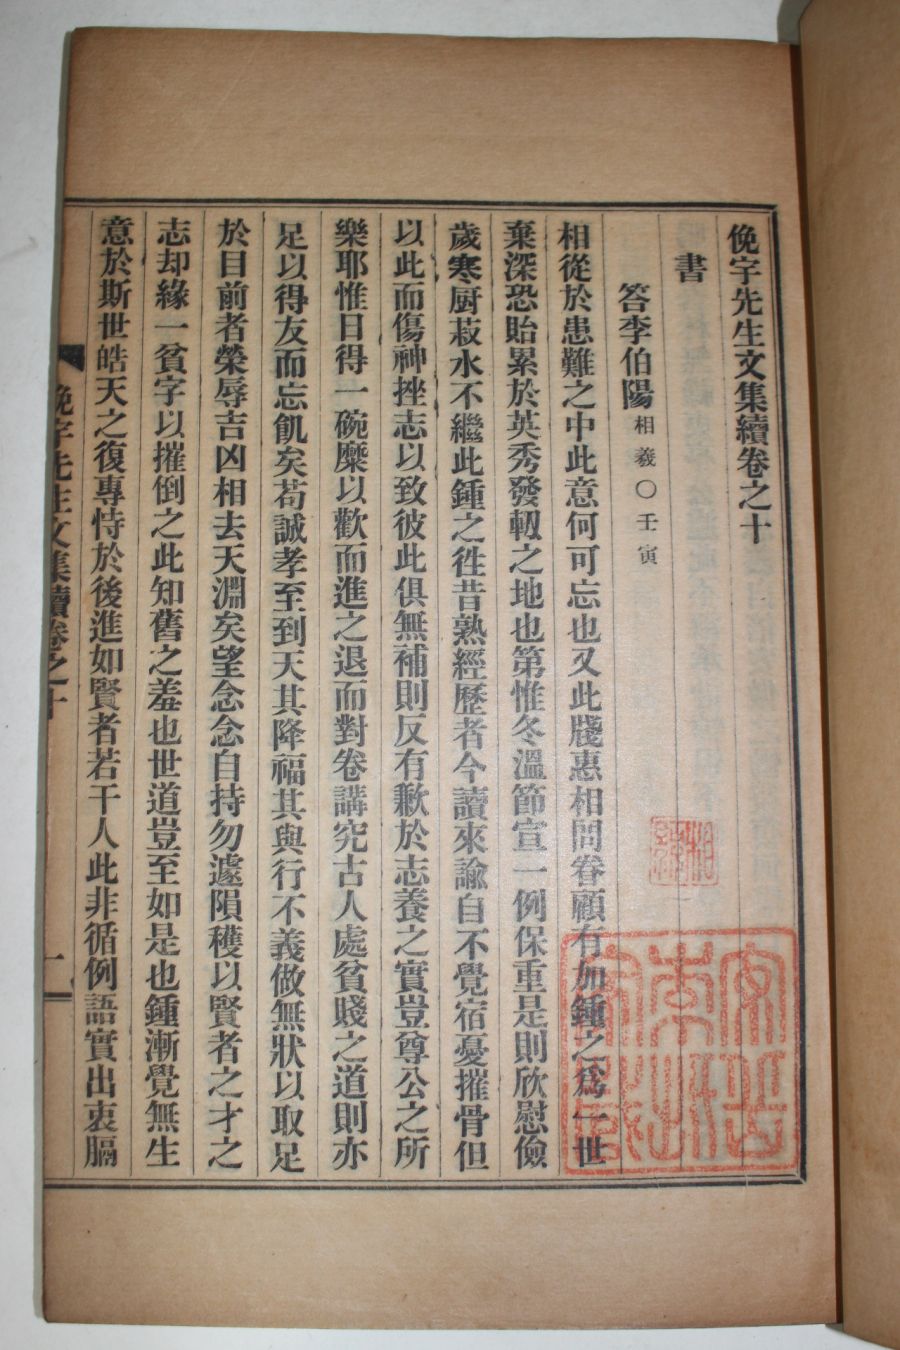 俛宇先生文集續卷之十
書
答李伯陽相羲○壬寅
相從於患難之中此意何可忘也又此牋惠相問眷顧有加鍾之爲一世
棄深恐貽累於英秀發軔之地也第惟冬溫節宣二例保重是則欣慰儉
歲寒厨菽水不繼此鍾之徃昔熟經歷者今讀來諭自不覺宿憂摧骨但
以此而傷神挫志以致彼此俱無補則反有歉於志養之實豈尊公之所
樂耶惟日得一碗糜以歡而進之退而對卷講究古人處貧賤之道則亦
足以得友而忘飢矣苟誠孝至到天其降福其與行不義做無狀以取足
於目前者榮辱吉凶相去天淵矣望念念自持勿遽隕穫以賢者之才之
志却緣一貧字以摧倒之此知舊之羞也世道豈至如是也鍾漸覺無生
意於斯世皓天之復專恃於後進如賢者若干人此非循例語實出衷膈
俛宇先生文集續卷之十
一